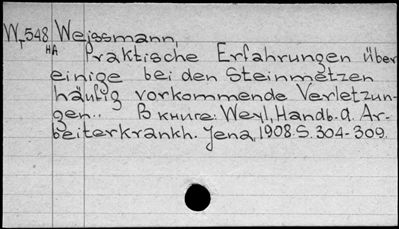 W 548 Weissmann,
HA Praktische Erfahrungen über
einige bei den Steinmetzen
häufig vorkommende Verletzun-
gen.. В книге: Weyl, Handb. d. Ar-
beiterkrankh. Jena, 1908. S. 304-309.